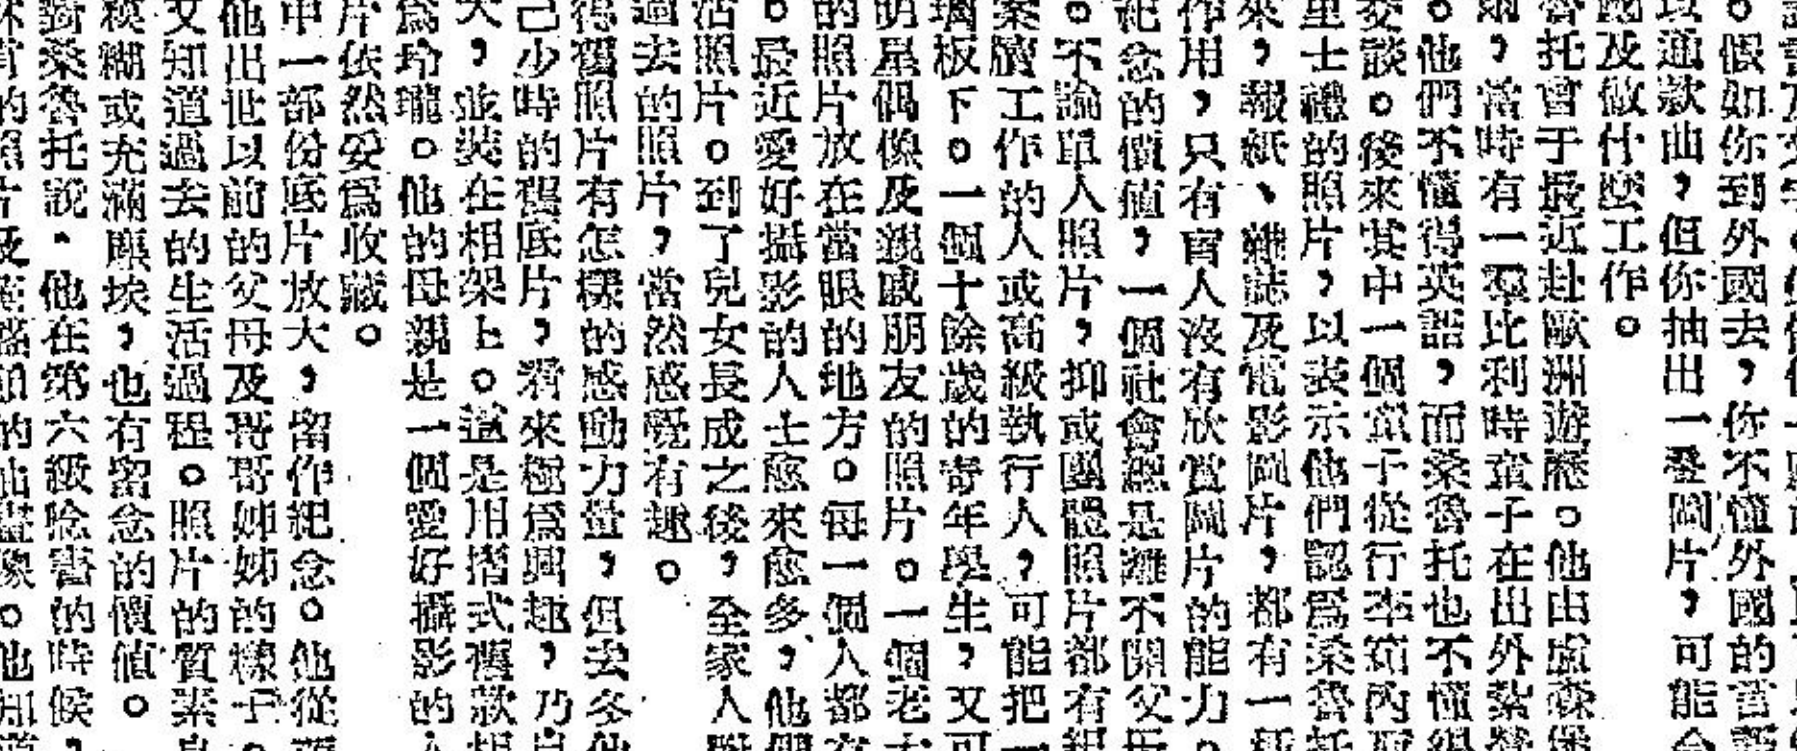 。假如你到外國去，你不懂外國的言語
以通款曲，但你抽出一叠圖片，可能會
國及做什麼工作。
魯托曾于最近赴歐洲遊歷。他由盧森堡
，當時有一羣比利時童子在出外紮營
。他們不懂得英語，而桑魯托也不懂得
交談。後來其中一個童子從行李箱內取
里士禮的照片，以表示他們認爲桑魯托
來，報紙、雜誌及電影圖片，都有一種
作用，只有盲人沒有欣賞圖片的能力。
紀念的價值，一個社會總是離不開父母
。不論單人照片，抑或團體照片都有紀
案牘工作的人或高級執行人，可能把一
璃板下。一個十餘歲的青年學生，又可
明星偶像及親戚朋友的照片。一個老太
的照片放在當眼的地方。每一個人都有
。最近愛好攝影的人士愈來愈多，他們
活照片。到了兒女長成之後，全家人對
過去的照片，當然感覺有趣。
得舊照片有怎樣的感動力量，但去冬他
己少時的舊底片，看來極爲興趣，乃自
大，並裝在相架上。這是用摺式舊款相
爲玲瓏。他的母親是一個愛好攝影的人
片依然妥爲收藏。
中一部份底片放大，留作紀念。他從
他出世以前的父母及哥哥姊姊的樣子。
又知道過去的生活過程。照片的質素
模糊或充滿塵埃，也有留念的價值。
對桑魯托說，他在第六級唸書的時候，
的照片及 的 像。他知道